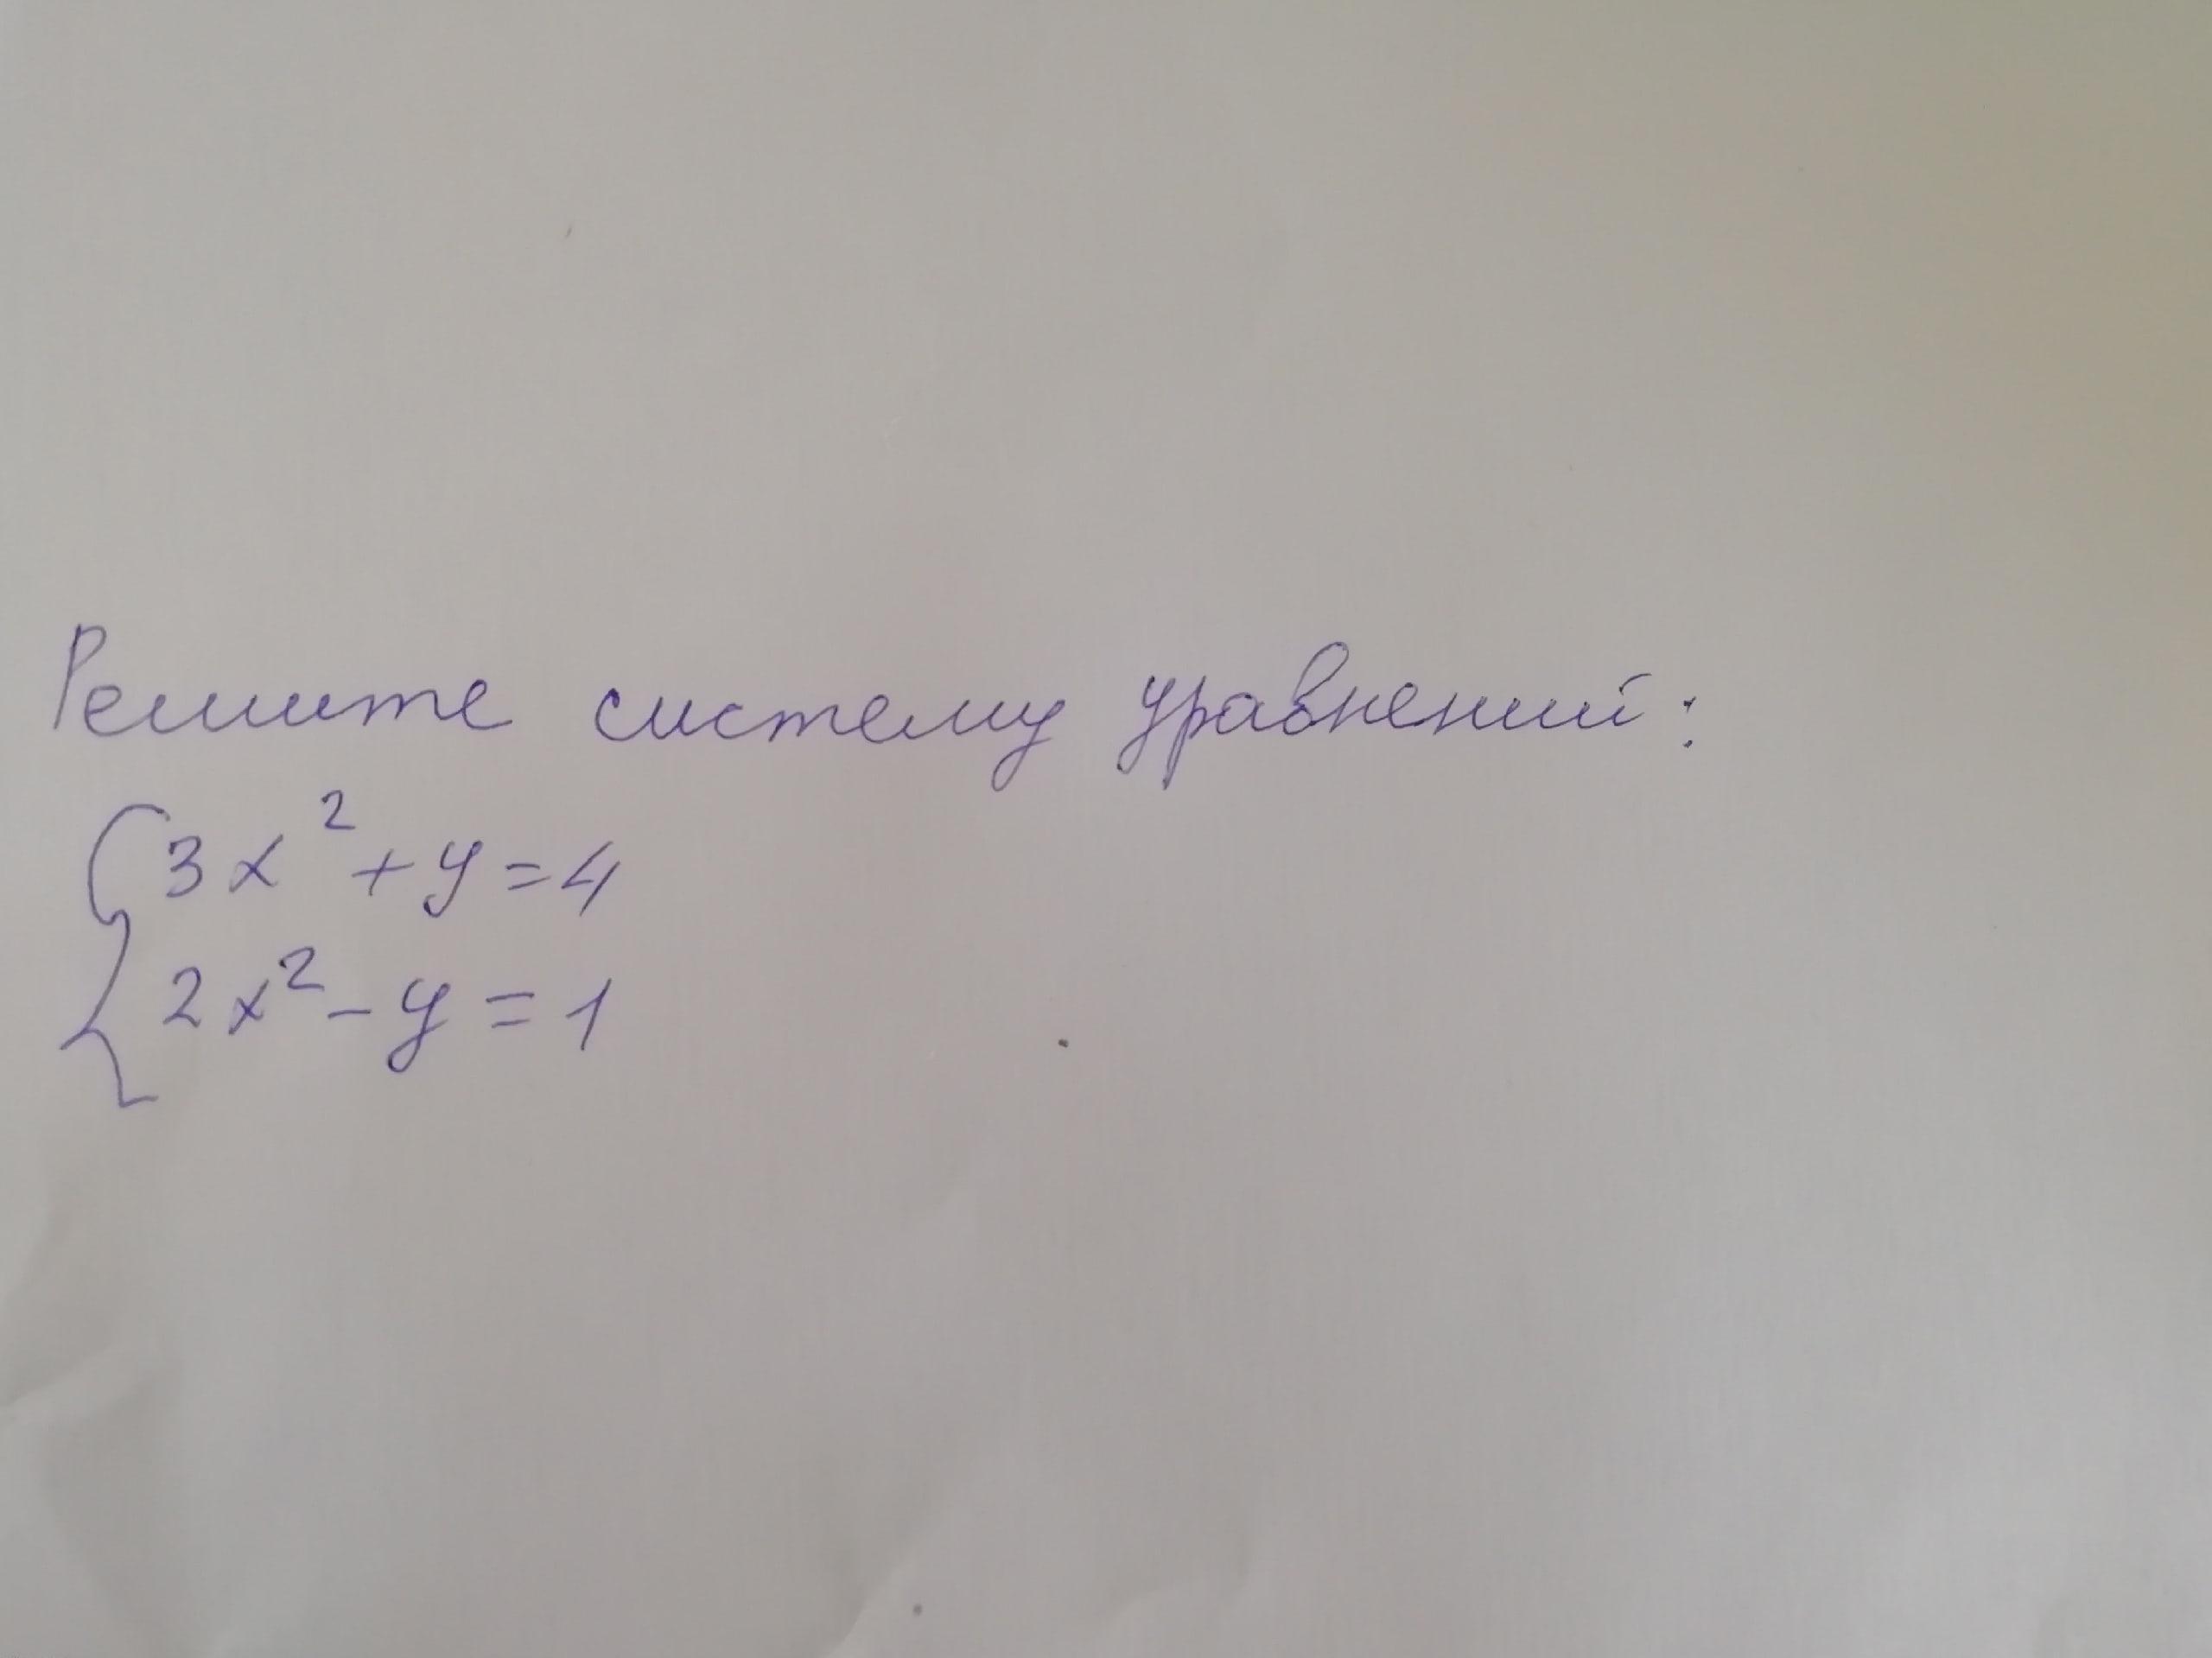 Решите систему уравнений:
3x² + y = 4
2x² - y = 1